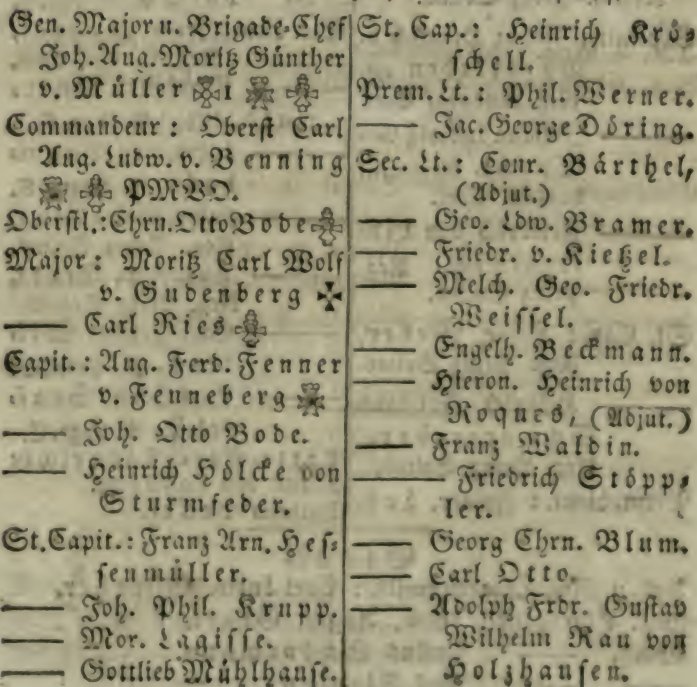 Gen. Major u. Brigade-Chef
Joh. Aug. Moritz Günther
v. Müller 1
Commandeur: Oberst Carl
Aug. Ludw. v. Benning
PMVO.
Oberstl.: Chrn. Otto Bode
Major: Moritz Carl Wolf
v. Gudenberg
— Carl Ries
Capit.: Aug. Ferd. Fenner
v. Fenneberg
— Joh. Otto Bode.
— Heinrich Hölcke von
Sturmfeder.
St. Capit.: Franz Arn. Hes-
senmüller.
— Joh. Phil. Krupp.
— Mor. Lagisse.
— Gottlieb Mühlhause.
St. Cap.: Heinrich Krö-
schell.
Prem. Lt.: Phil. Werner.
— Jac. George Döring.
Sec. Lt.: Conr. Bärthel,
(Adjut.)
— Geo. Ldw. Bramer.
— Friedr. v. Kietzel.
— Melch. Geo. Friedr.
Weissel.
— Engelh. Beckmann.
— Hieron. Heinrich von
Roques, (Adjut.)
— Franz Waldin.
— Friedrich Stöpp-
ler.
— Georg Chrn. Blum.
— Carl Otto.
— Adolph Frdr. Gustav
Wilhelm Rau von
Holzhausen.